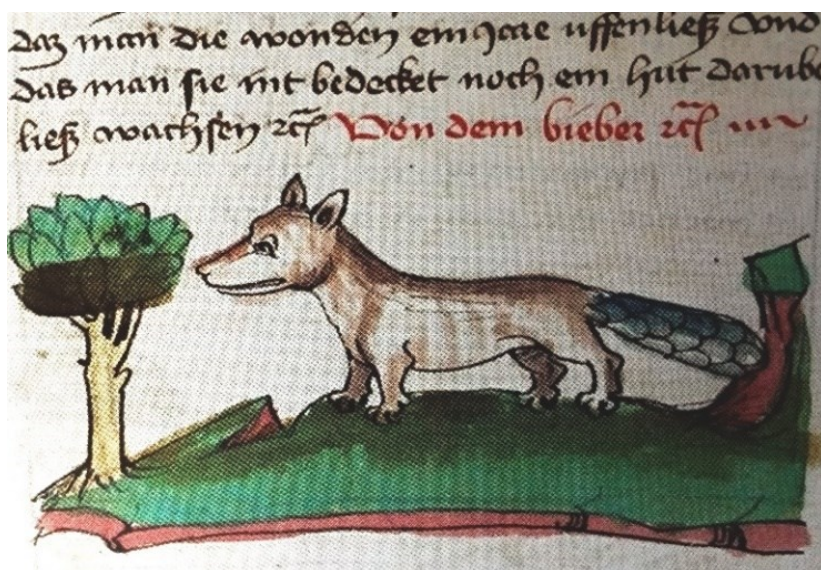 daz man die wonden ein Jare uffenließ Vnd
das man sie nit bedecket noch ein hut darube
ließ wachsen rcꝭ Von dem bieber rcꝭ